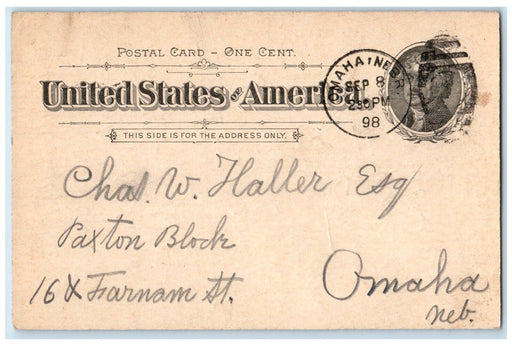 POSTAL CARD - ONE CENT.
United States of America
THIS SIDE IS FOR THE ADDRESS ONLY.
OMAHA, NEB.
SEP 8
230PM
98
Chas. W. Haller Esq
Paxton Block
16 & Farnam St.
Omaha
Neb.